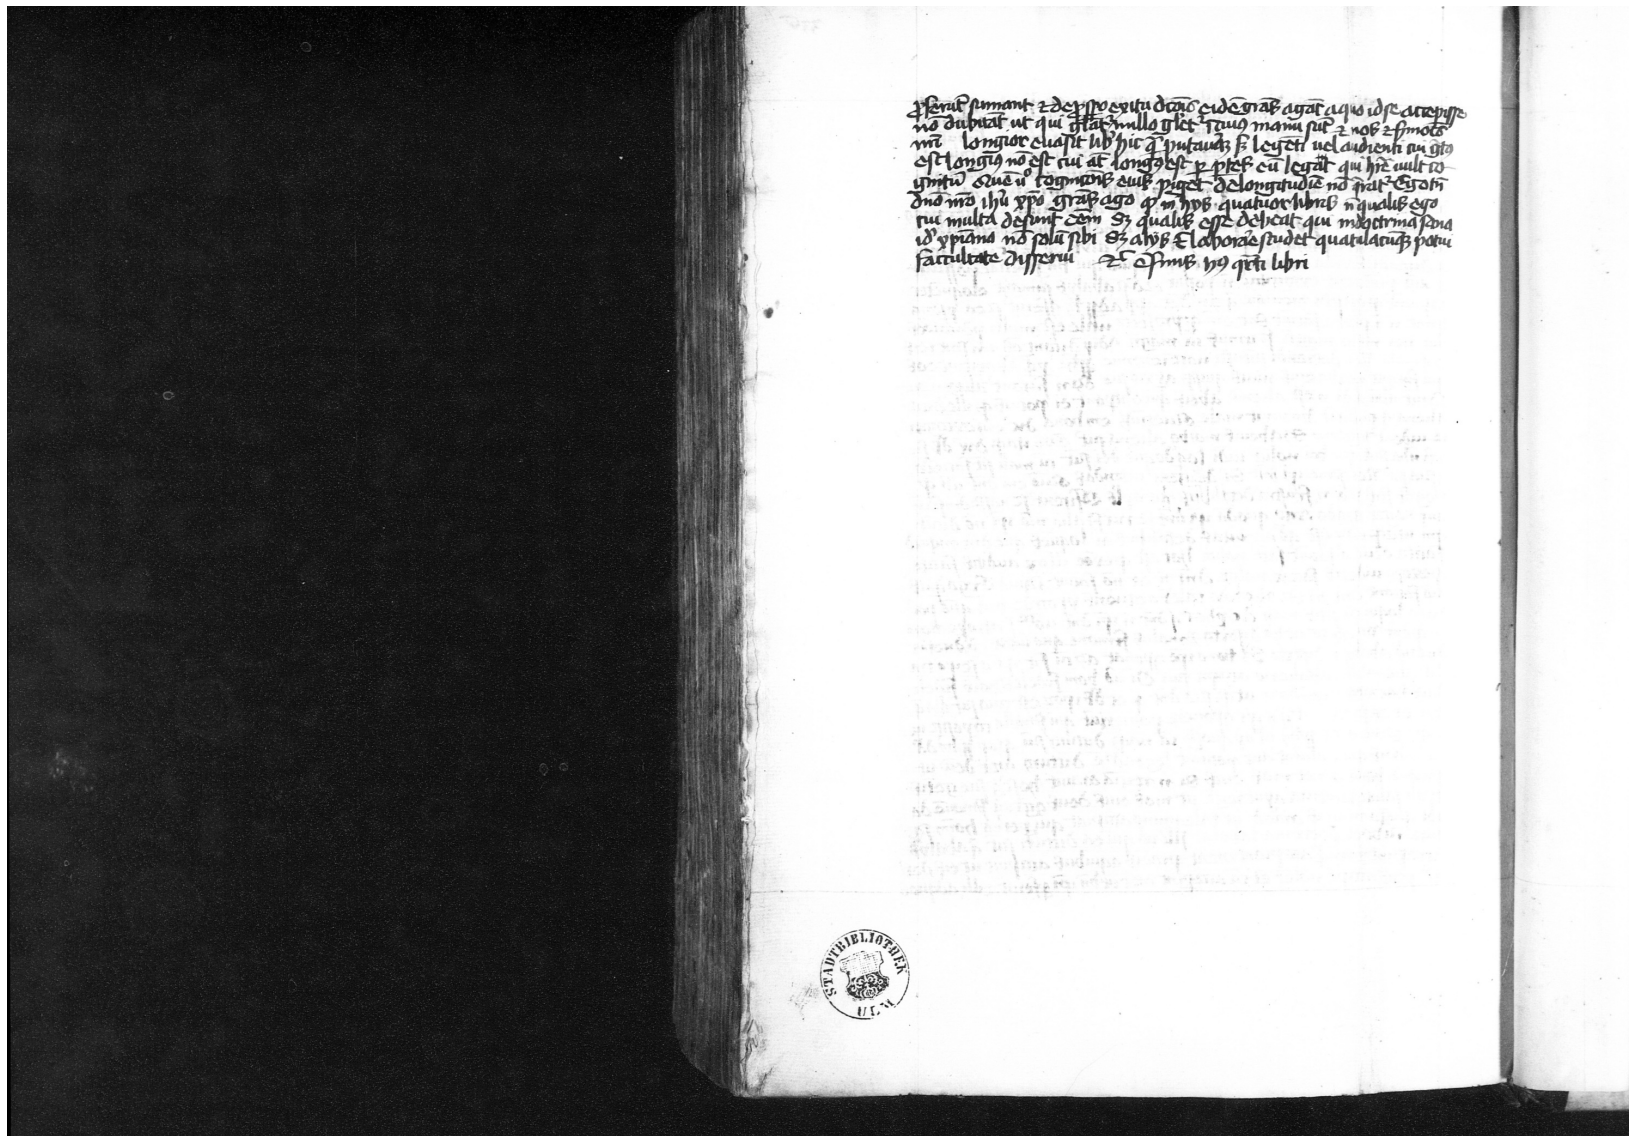 ꝓferūt sumant ⁊ de ꝓspo exitu dcōis eidē grās agāt a quo id se accepisse
nō dubitāt ut qui gl̄at᷑ in illo gl̄et᷑ ī cuiꝰ manu sūt ⁊ nos ⁊ s̄mōes
nr̄i longior euasit lib᷑ hic qͣ putauāꝫ sꝫ legēti uel audienti cui gͣtꝰ
est longꝰ nō est cui āt longꝰ est ꝑ ꝑtes eū legat qui h̄re uult co
gnitū Quē uͦ cognicōis eiꝰ piget de longitudīe nō q̄rat᷑ Ego tn̄
dn̄o nr̄o ihū xp̄o grās ago ꝙ in hys quatuor libris n̄ qualis ego
cui multa desunt eēm sꝫ qualis esse debeat qui in doctrina sana
id᷑ xp̄iana nō solū sibi sꝫ alys ēt laborare studet quātulacūqꝫ potui
facultate disserui ⁊c̄ Est finis hꝰ q̄rti libri
STADTBIBLIOTHEK
ULM